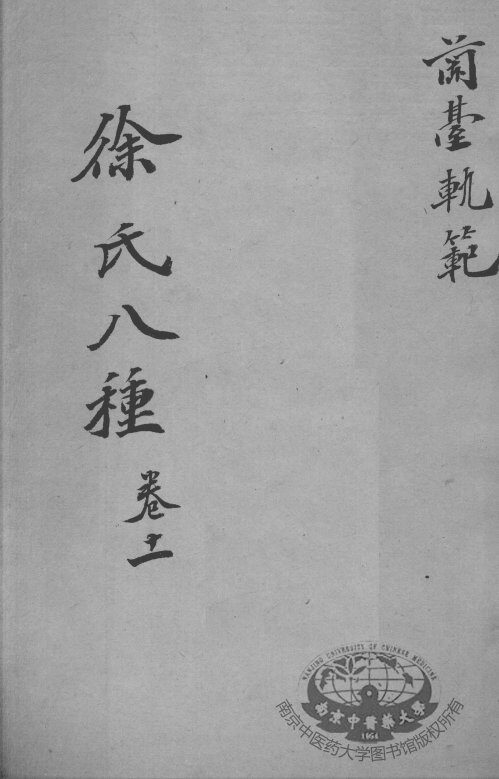 蘭臺軌範
徐氏八種
卷十一
NANJING UNIVERSITY OF CHINESE MEDICINE
南京中醫藥大學
1954
南京中医药大学图书馆版权所有